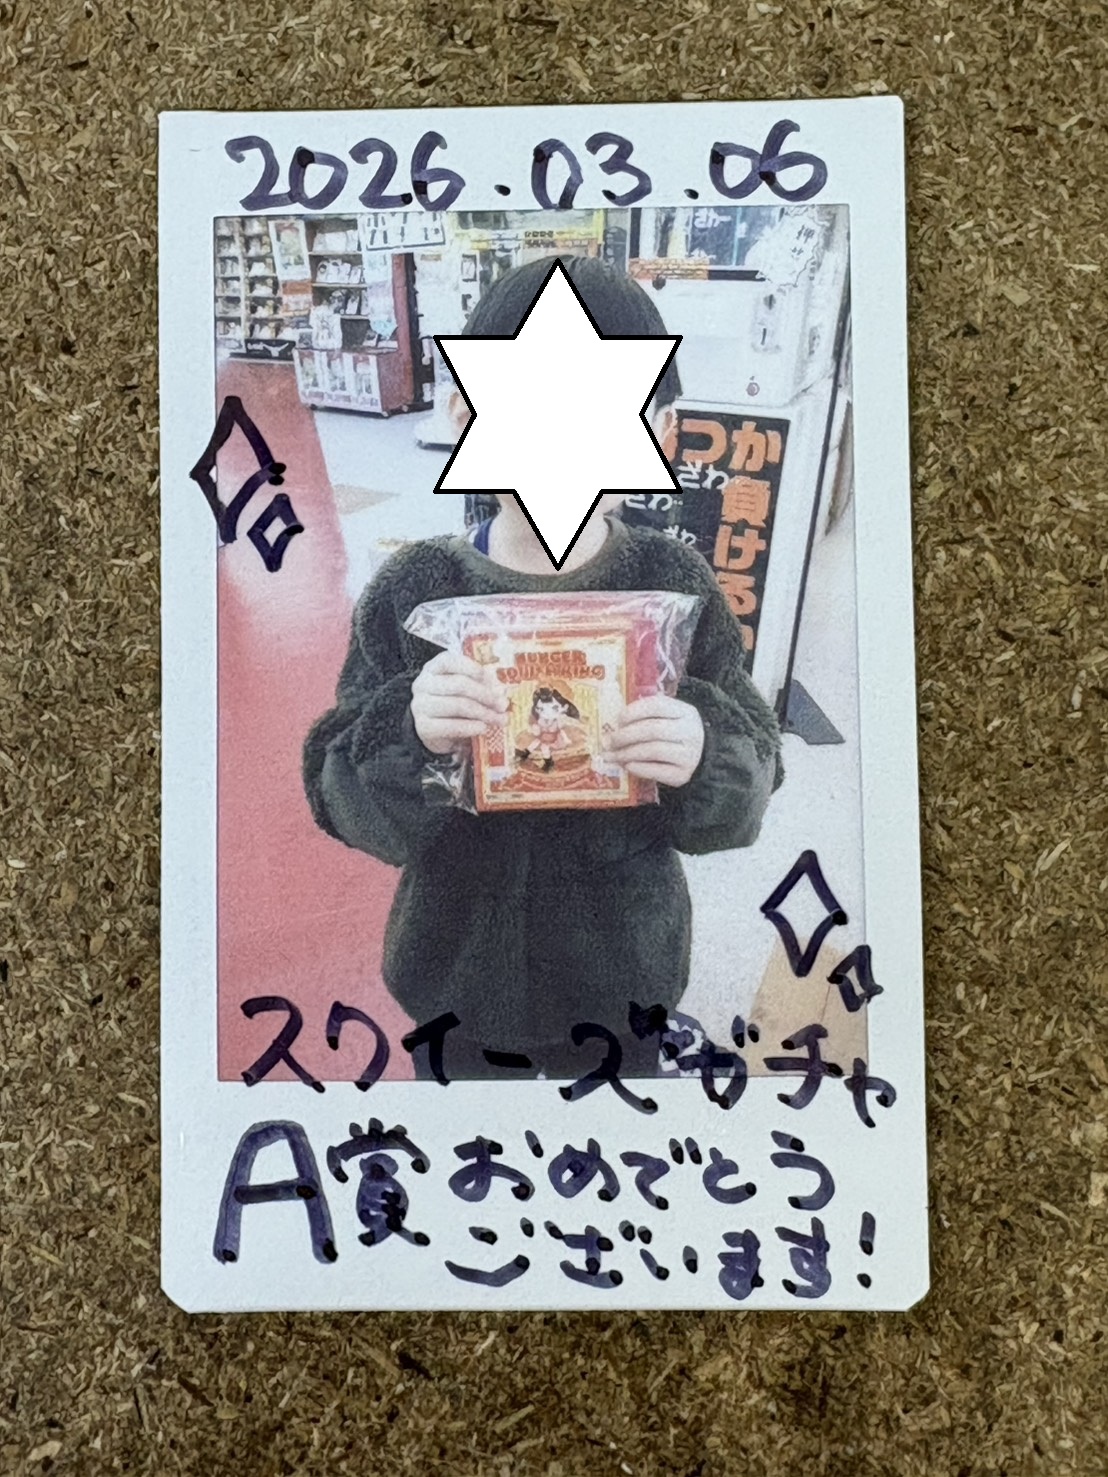 2026.03.06
押
つか
負ける
ざわ
ざわ
HUNGER
スクイーズガチャ
A賞おめでとう
ございます!